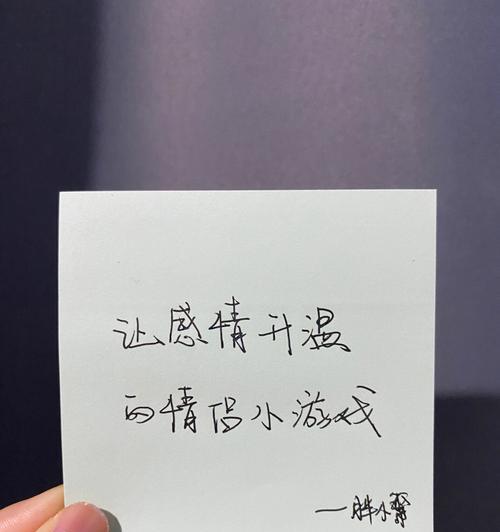 让感情升温
的情侣小游戏
一胖小